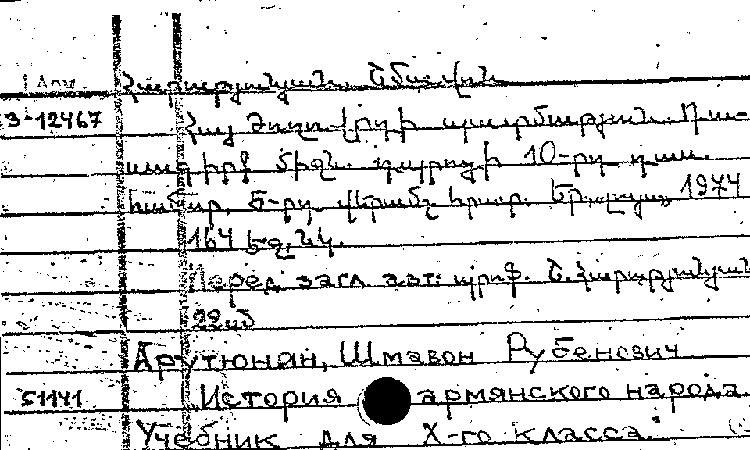 Հարությունյան, Շմավոն
З-12467 Հայ ժողովրդի պատմություն. Դա-
սագիրք միջն. դպրոցի 10-րդ դաս.
համար. 5-րդ վերամշ. հրատ. Եր., Լույս, 1974
164 էջ, նկ.
Перед загл. авт: պրոֆ. Շ. Հարությունյան
22սմ
Арутюнян, Шмавон Рубенович
51141 История армянского народа.
Учебник для X-го класса.